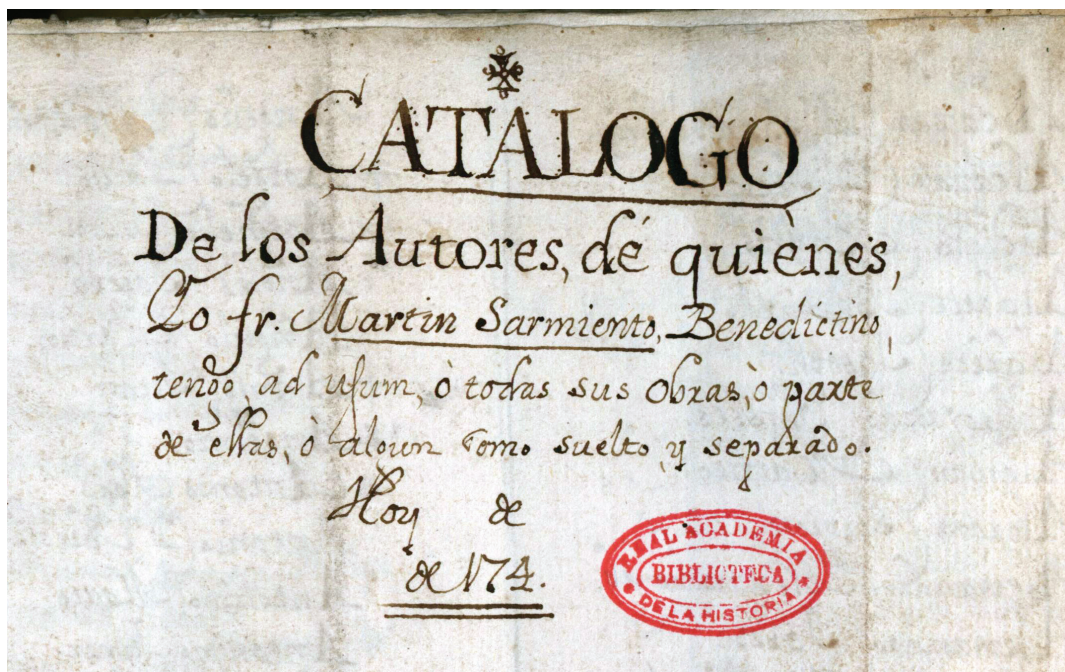 CATALOGO
De los Autores, dé quiènes,
Yo fr. Martin Sarmiento, Benedictino,
tengo, ad usum, ò todas sus Obras, ò parte
de ellas, ò algun tomo suelto, y separado.
Hoy de
de 174.
REAL ACADEMIA
BIBLIOTECA
DE LA HISTORIA